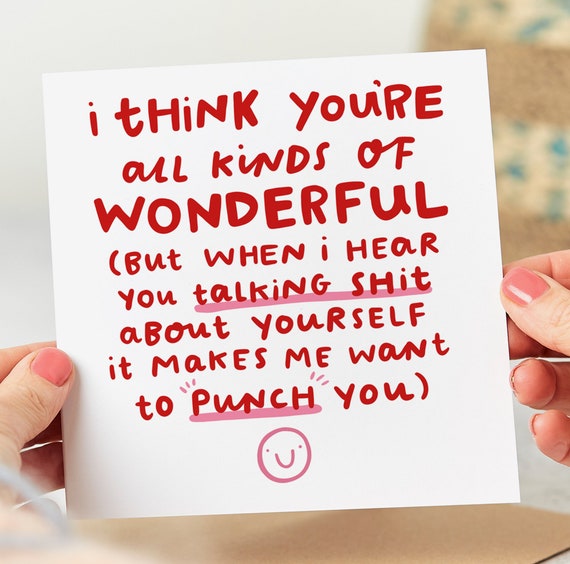 i THiNK YOU'RE
all KiNDS OF
WONDERFUL
(But WHEN i HEAR
YOU talKiNG SHit
aBOUt YOURSELF
it MaKES ME WaNt
to PUNCH YOU)